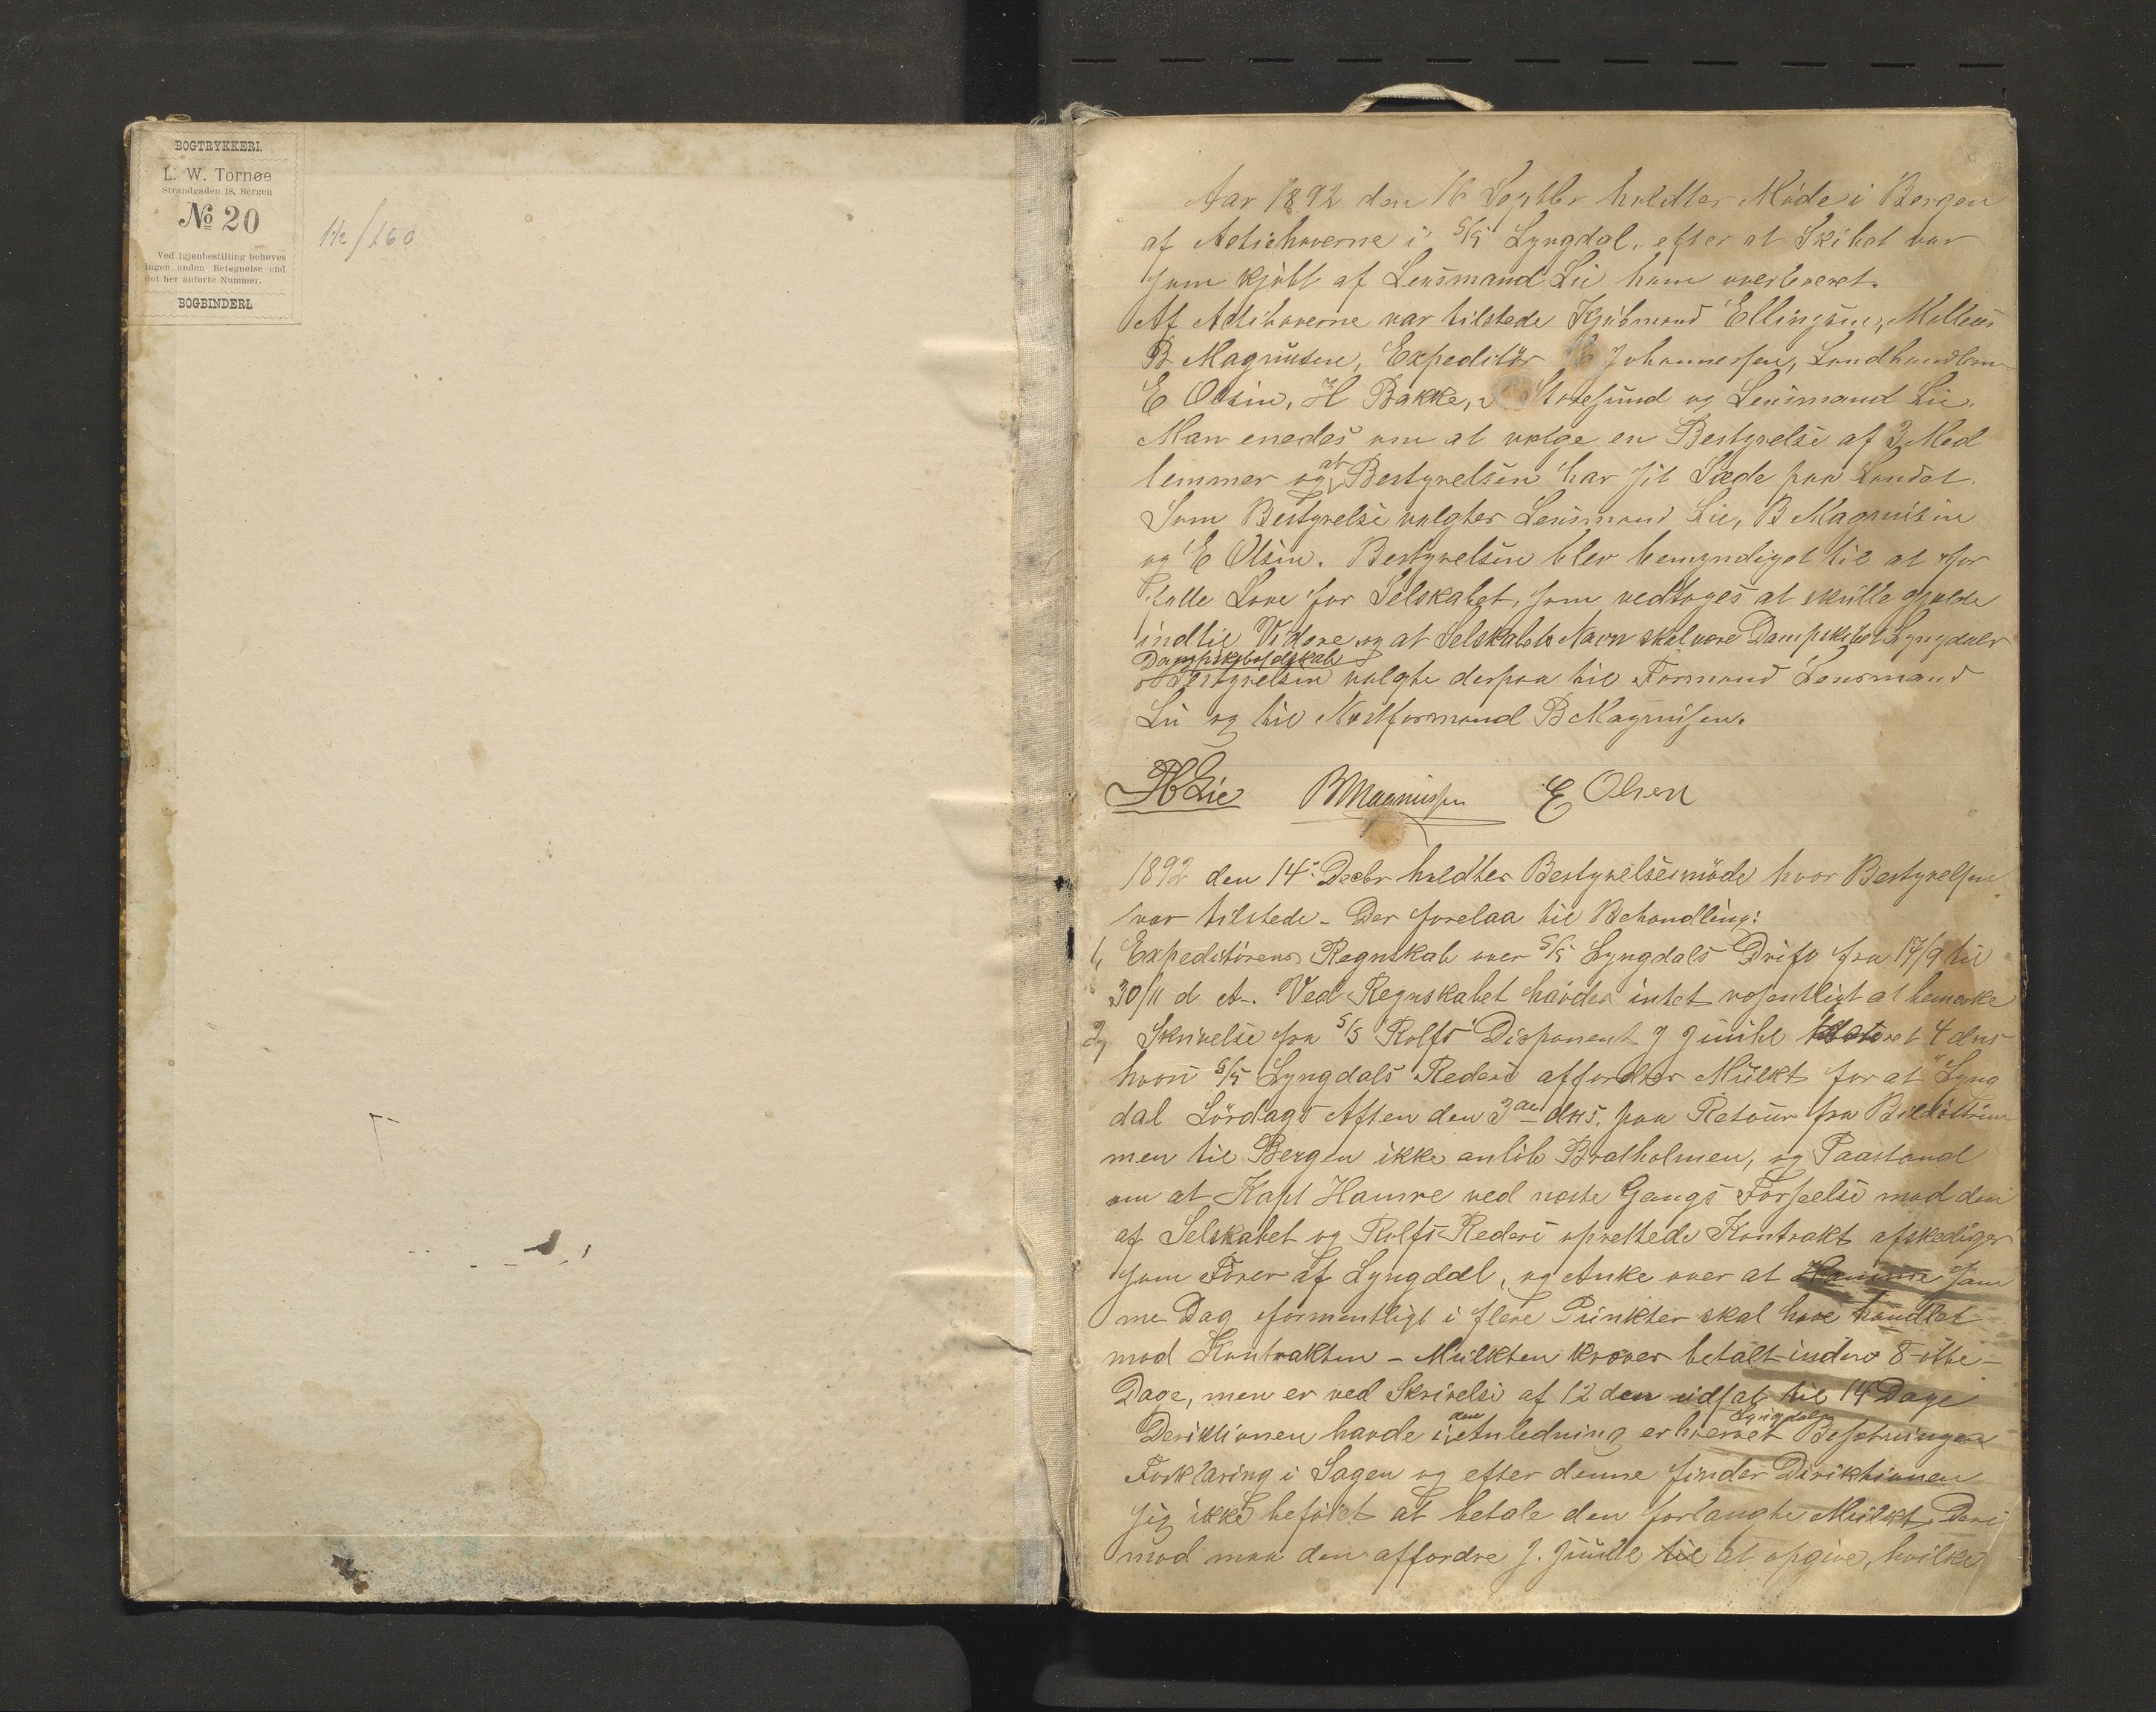 BOGTRYKKERI.
L. W. Tornøe
Strandgaden 18, Bergen
No 20
Ved Igjenbestilling behøves
ingen anden Betegnelse end
det her anførte Nummer.
BOGBINDERI.
1/2/160
Aar 1892 den 16 Septbr holdtes Møde i Bergen
af Actiehaverne i S/S Lyngdal, efter at Skibet var
som kjøbt af Lensmand Lie ham overleveret.
Af Actihaverne var tilstede Kjøbmand Ellingsen, Møller
B Magnusen, Expeditør Johannessen, Landhandlerne
E Olsen, H Bakke, Storesund og Lensmand Lie.
Man enedes om at vælge en Bestyrelse af 3 Med
lemmer og at Bestyrelsen har sit Sæde paa Landet.
Som Bestyrelse valgtes Lensmand Lie, B Magnusen
og E Olsen. Bestyrelsen blev bemyndiget til at for
fatte Love for Selskabet, som vedtoges at skulle gjælde
indtil Videre og at Selskabets Navn skal være Dampskibet Lyngdals
Dampskibsselskab
Bestyrelsen valgte derpaa til Formand Lensmand
Lie og til Næstformand B Magnusen.
Lie BMagnussen E Olsen
1892 den 14de Decbr holdtes Bestyrelsesmøde hvor Bestyrelsen
var tilstede - Der forelaa til Behandling:
1, Expeditørens Regnskab over S/S Lyngdals Drift fra 17/9 til
30/11 d A. Ved Regnskabet havdes intet væsentligt at bemærke
2, Skrivelse fra S/S Rolfs Disponent J Juuhl dateret 4 dns
hvori S/S Lyngdals Rederi affordres Mulkt for at Lyng
dal Lørdags Aften den 3die dns. paa Retour fra Bildøstrøm
men til Bergen ikke anløb Bratholmen, og Paastand
om at Kapt Hamre ved næste Gangs Forseelse mod den
af Selskabet og Rolfs Rederi oprettede Kontrakt afskediges
som Fører af Lyngdal, og Anke over at Hamre sam
me Dag formentligt i flere Punkter skal have handlet
mod Kontrakten - Mulkten kræves betalt inden 8-otte-
Dage, men er ved Skrivelse af 12 den udsat til 14 Dage
Deriktionen havde i den Anledning erhvervet Lyngdals Besætningens
Forklaring i Sagen og efter denne finder Diriktionen
sig ikke beføiet at betale den forlangte Mulkt. Deri
mod maa den affordre J. Juuhl til at opgive, hvilke